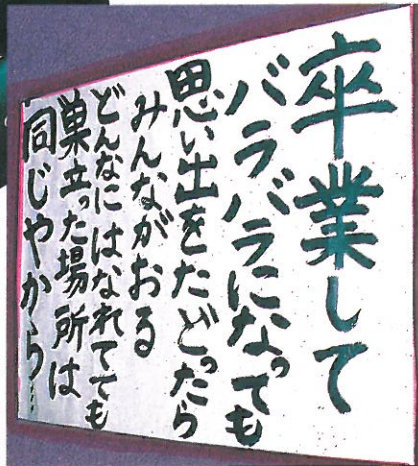 卒業して
バラバラになっても
思い出をたどったら
みんながおる
どんなにはなれてても
巣立った場所は
同じやから…